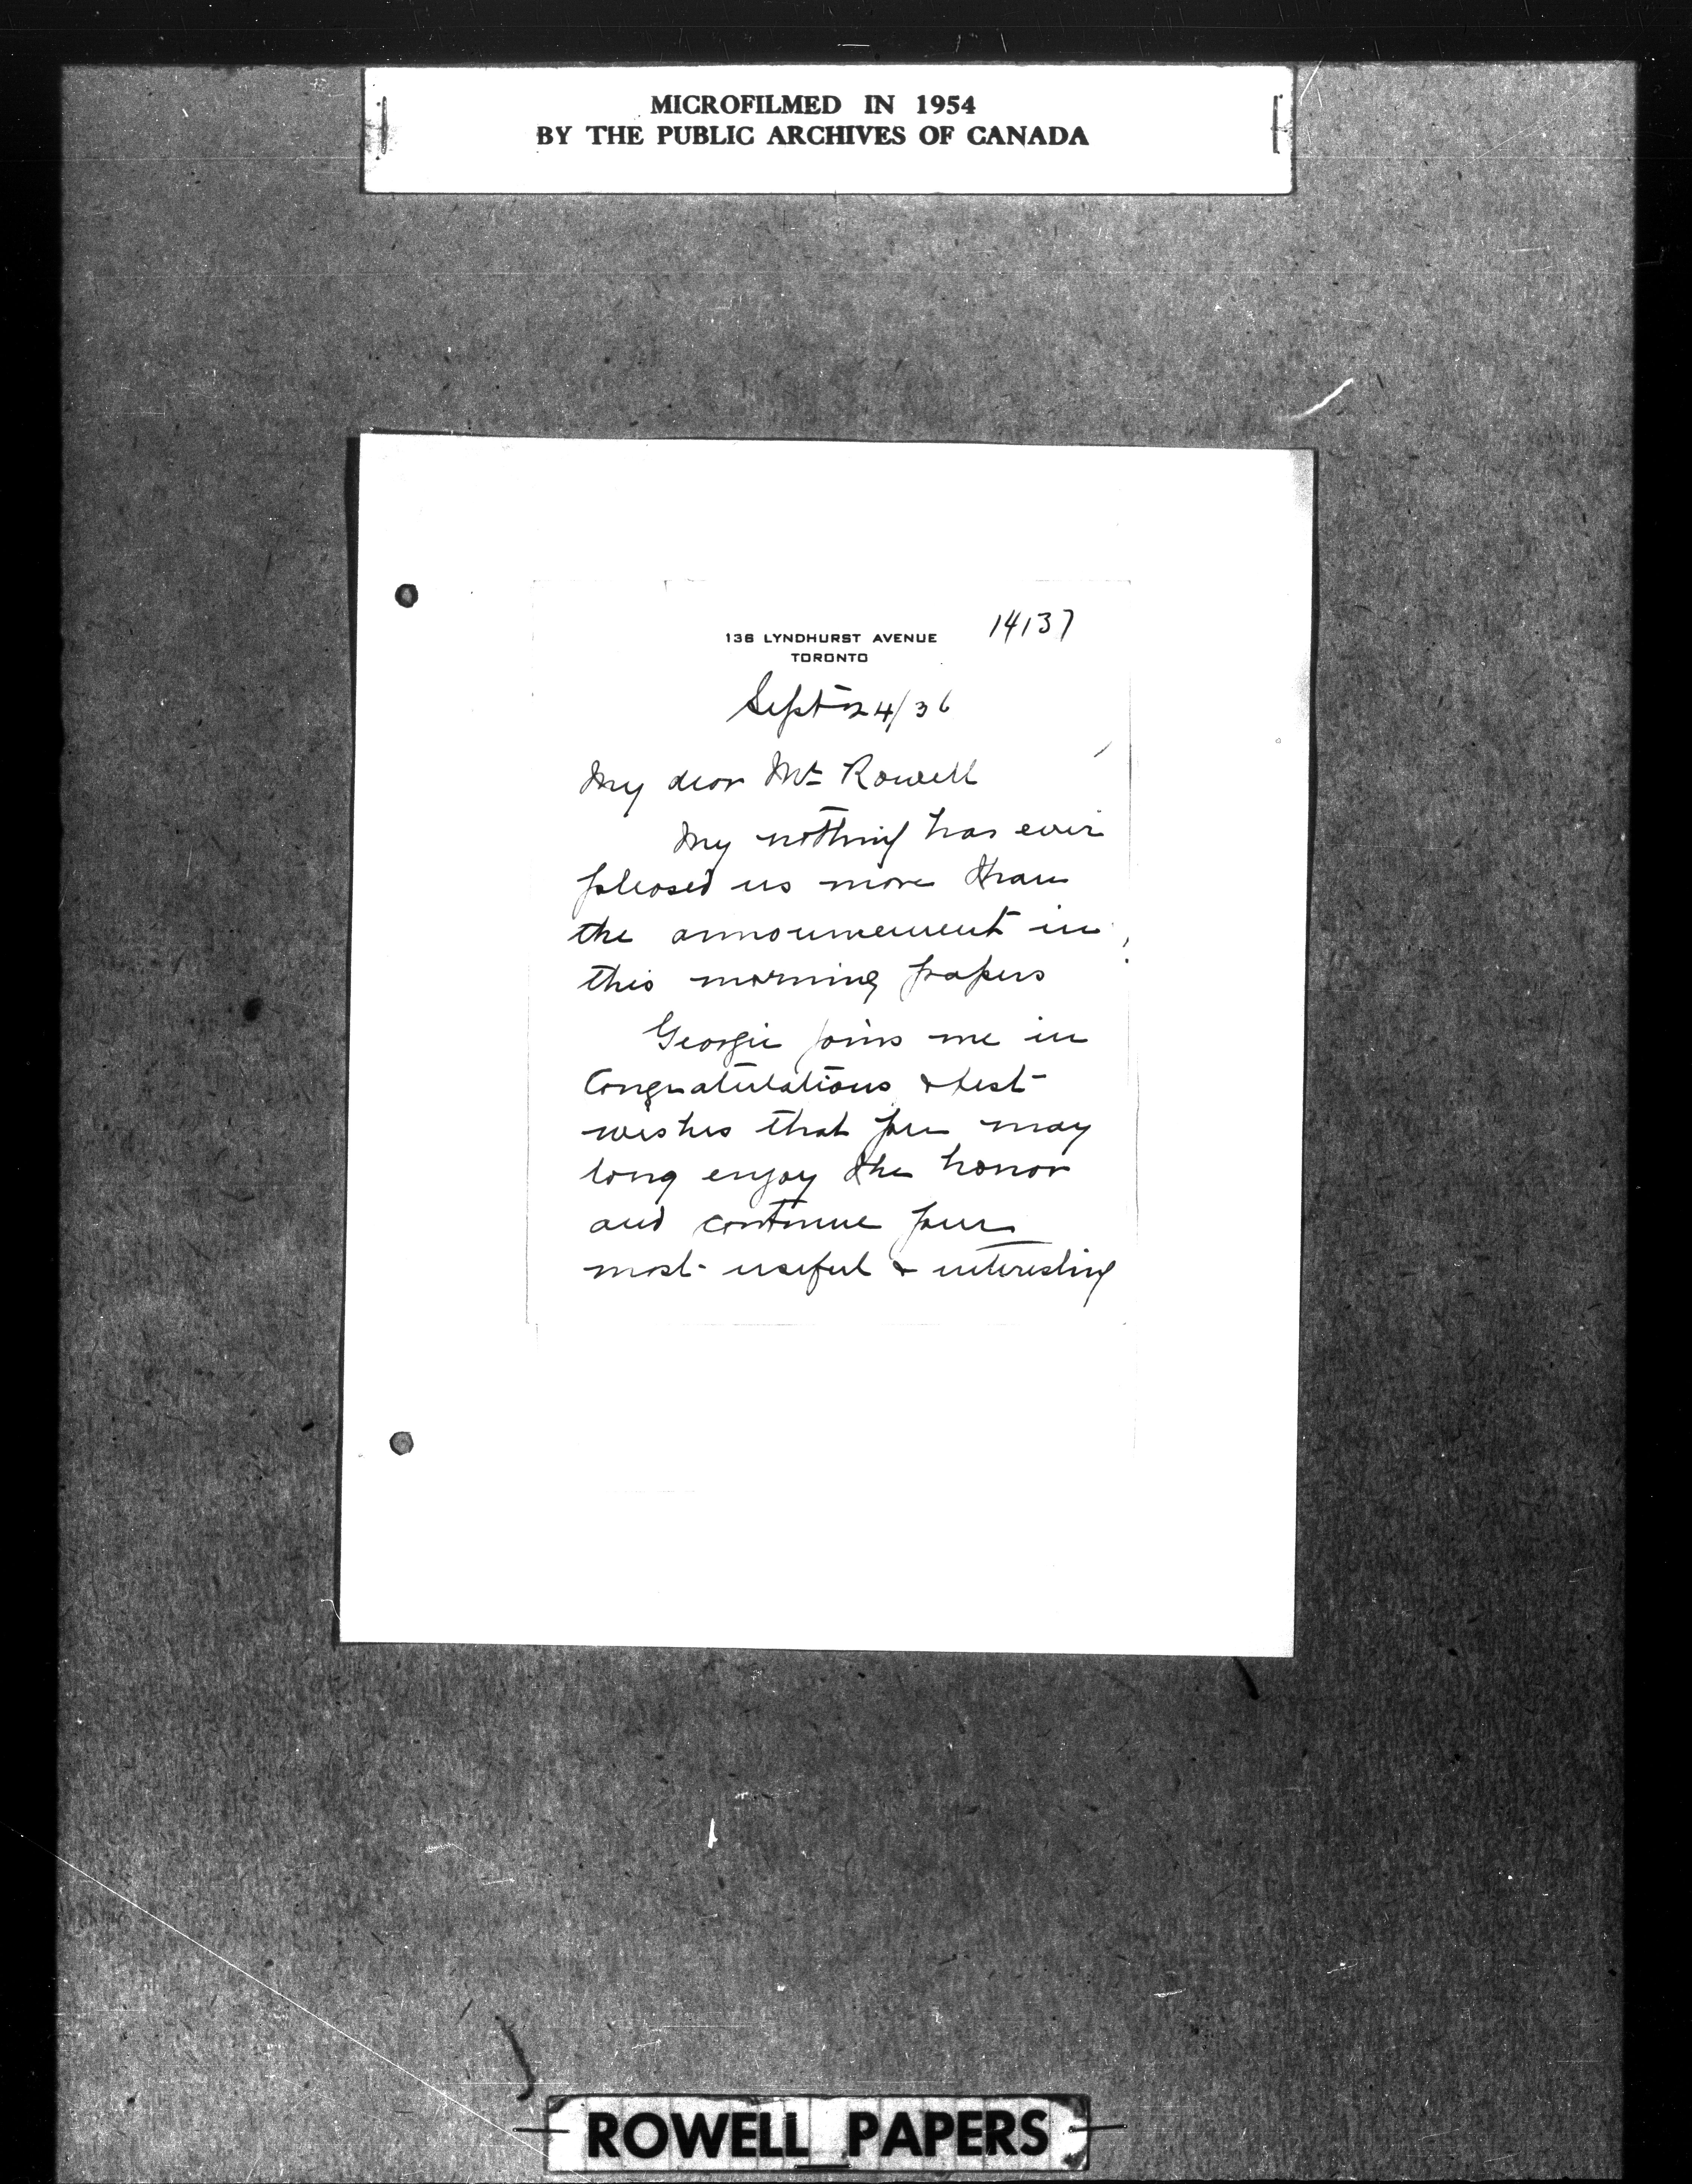 MICROFILMED IN 1954
BY THE PUBLIC ARCHIVES OF CANADA
14137
136 LYNDHURST AVENUE
TORONTO
Sept 24/36
My dear Mr Rowell
My nothing has ever
pleased us more than
the announcement in
this morning papers
Georgie joins me in
Congratulations & best
wishes that you may
long enjoy the honor
and continue your
most useful & interesting
ROWELL PAPERS